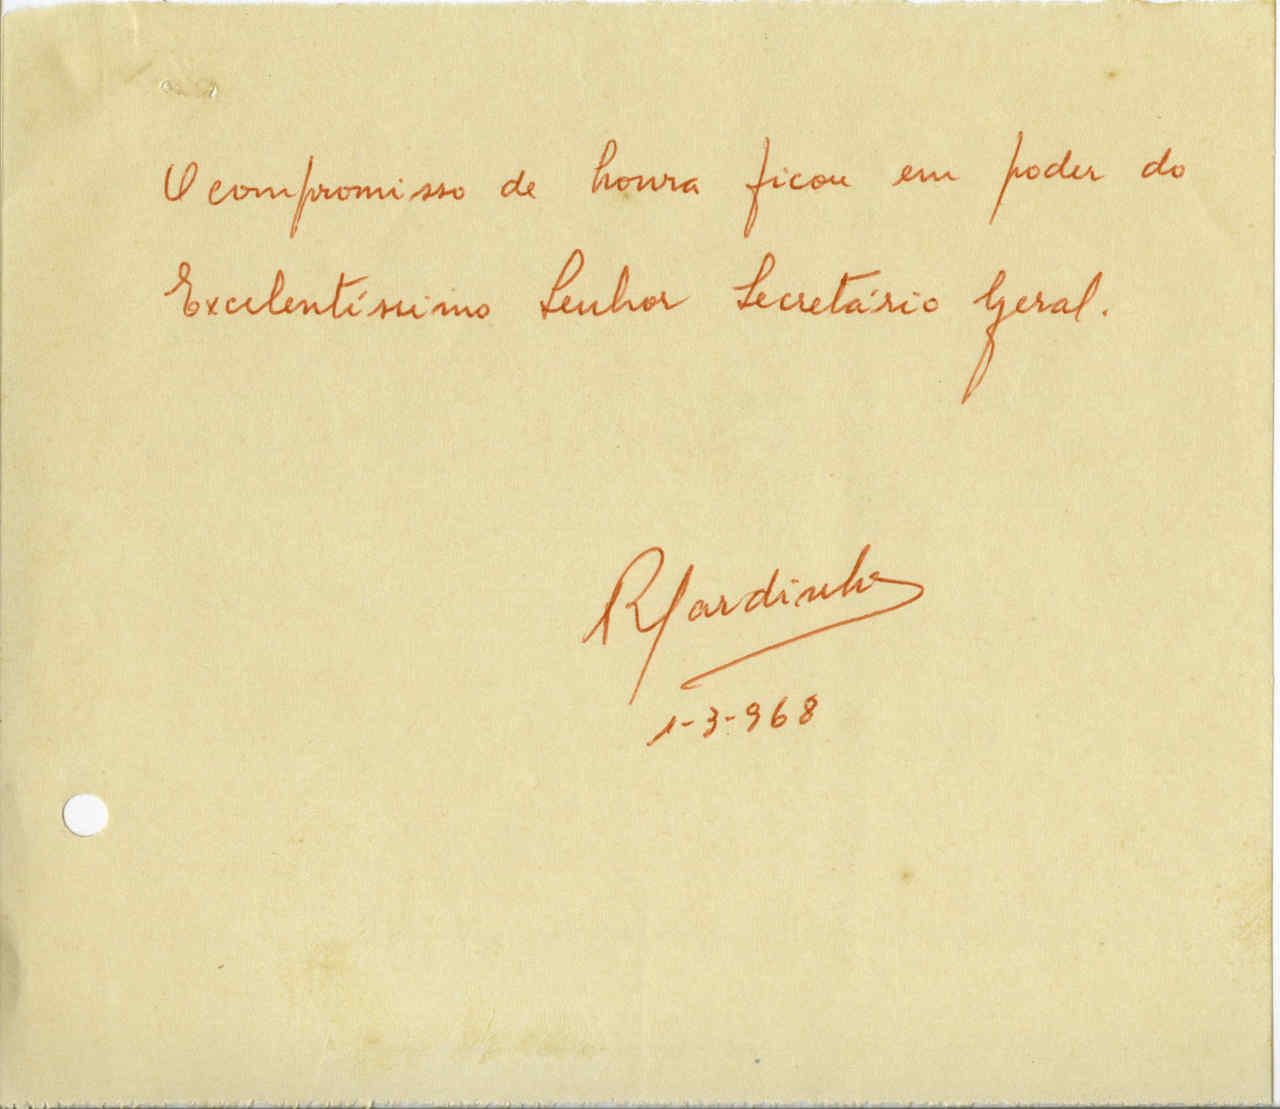 O compromisso de honra ficou em poder do
Excelentíssimo Senhor Secretário Geral.
RJardinha
1-3-968